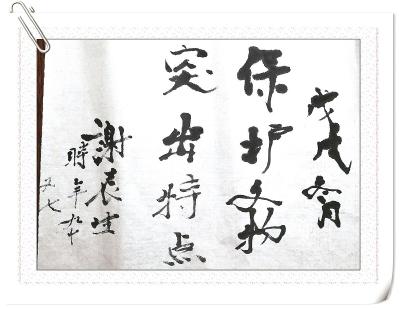 戊戌冬月
保护文物
突出特点
謝辰生
時年九十
又七